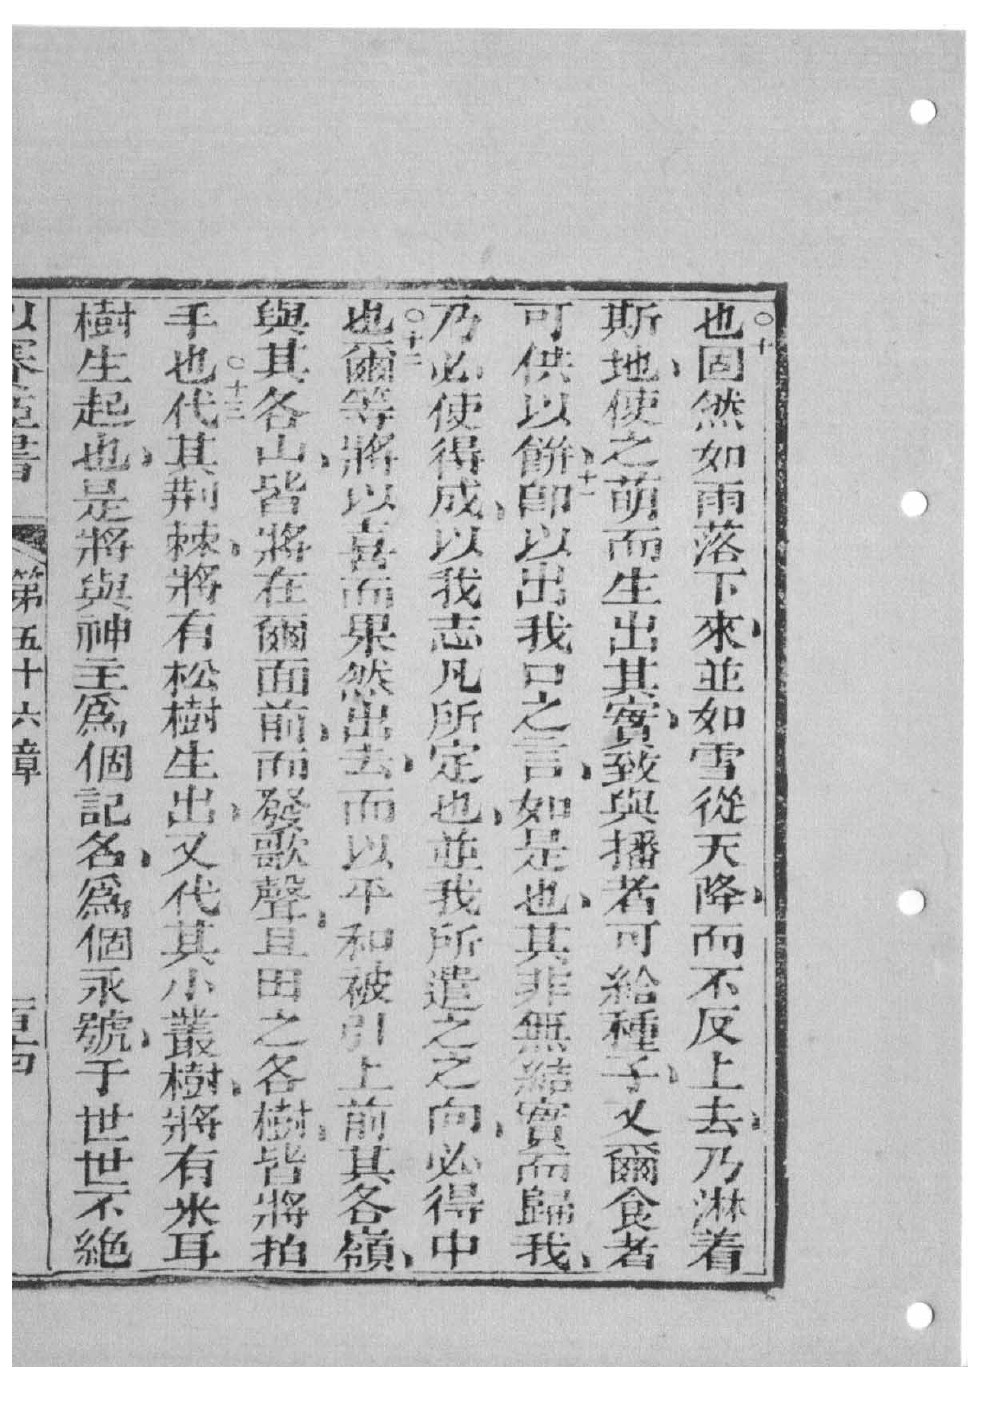 也○十固然如雨落下來、並如雪從天降、而不反上去、乃淋着
斯地、使之萌而生出其實、致與播者可給種子、又爾食者
可供以餅、○十一卽以出我口之言、如是也、其非無結實而歸我、
乃必使得成、以我志凡所定也、並我所遣之之向、必得中
也○十二爾等將以喜而果然出去、而以平和被引上前其各嶺、
與其各山、皆將在爾面前、而發歌聲、且田之各樹、皆將拍
手也○十三代其荆棘、將有松樹生出、又代其小叢樹、將有米耳
樹生起也、是將與神主爲個記名、爲個永號、于世世不絕
第五十六章